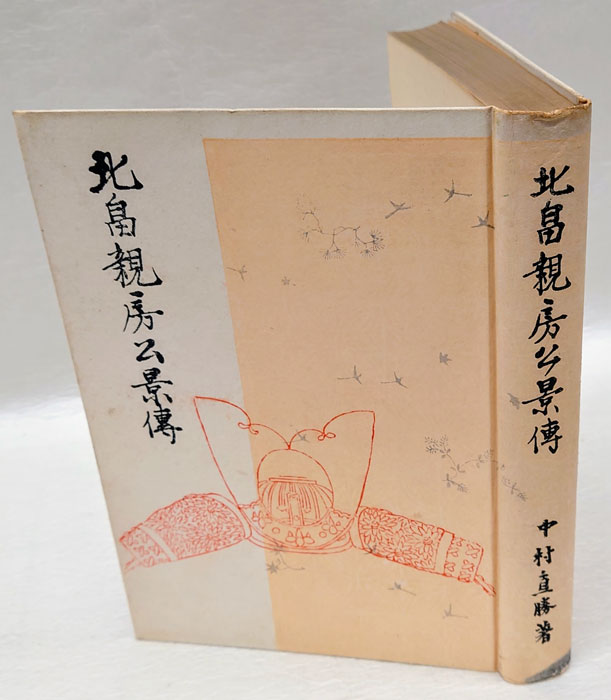 北畠親房公景傳
北畠親房公景傳
中村直勝著